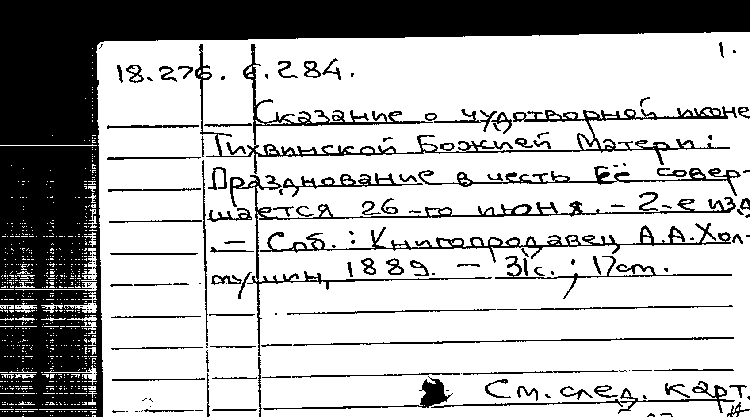 1.
18.276. 6.284.
Сказание о чудотворной иконе
Тихвинской Божией Матери:
Празднование в честь Её совер-
шается 26-го июня. - 2-е изд
. - Спб. : Книгопродавец А.А.Хол-
мушин, 1889. - 31с. ; 17см.
См. след. карт.